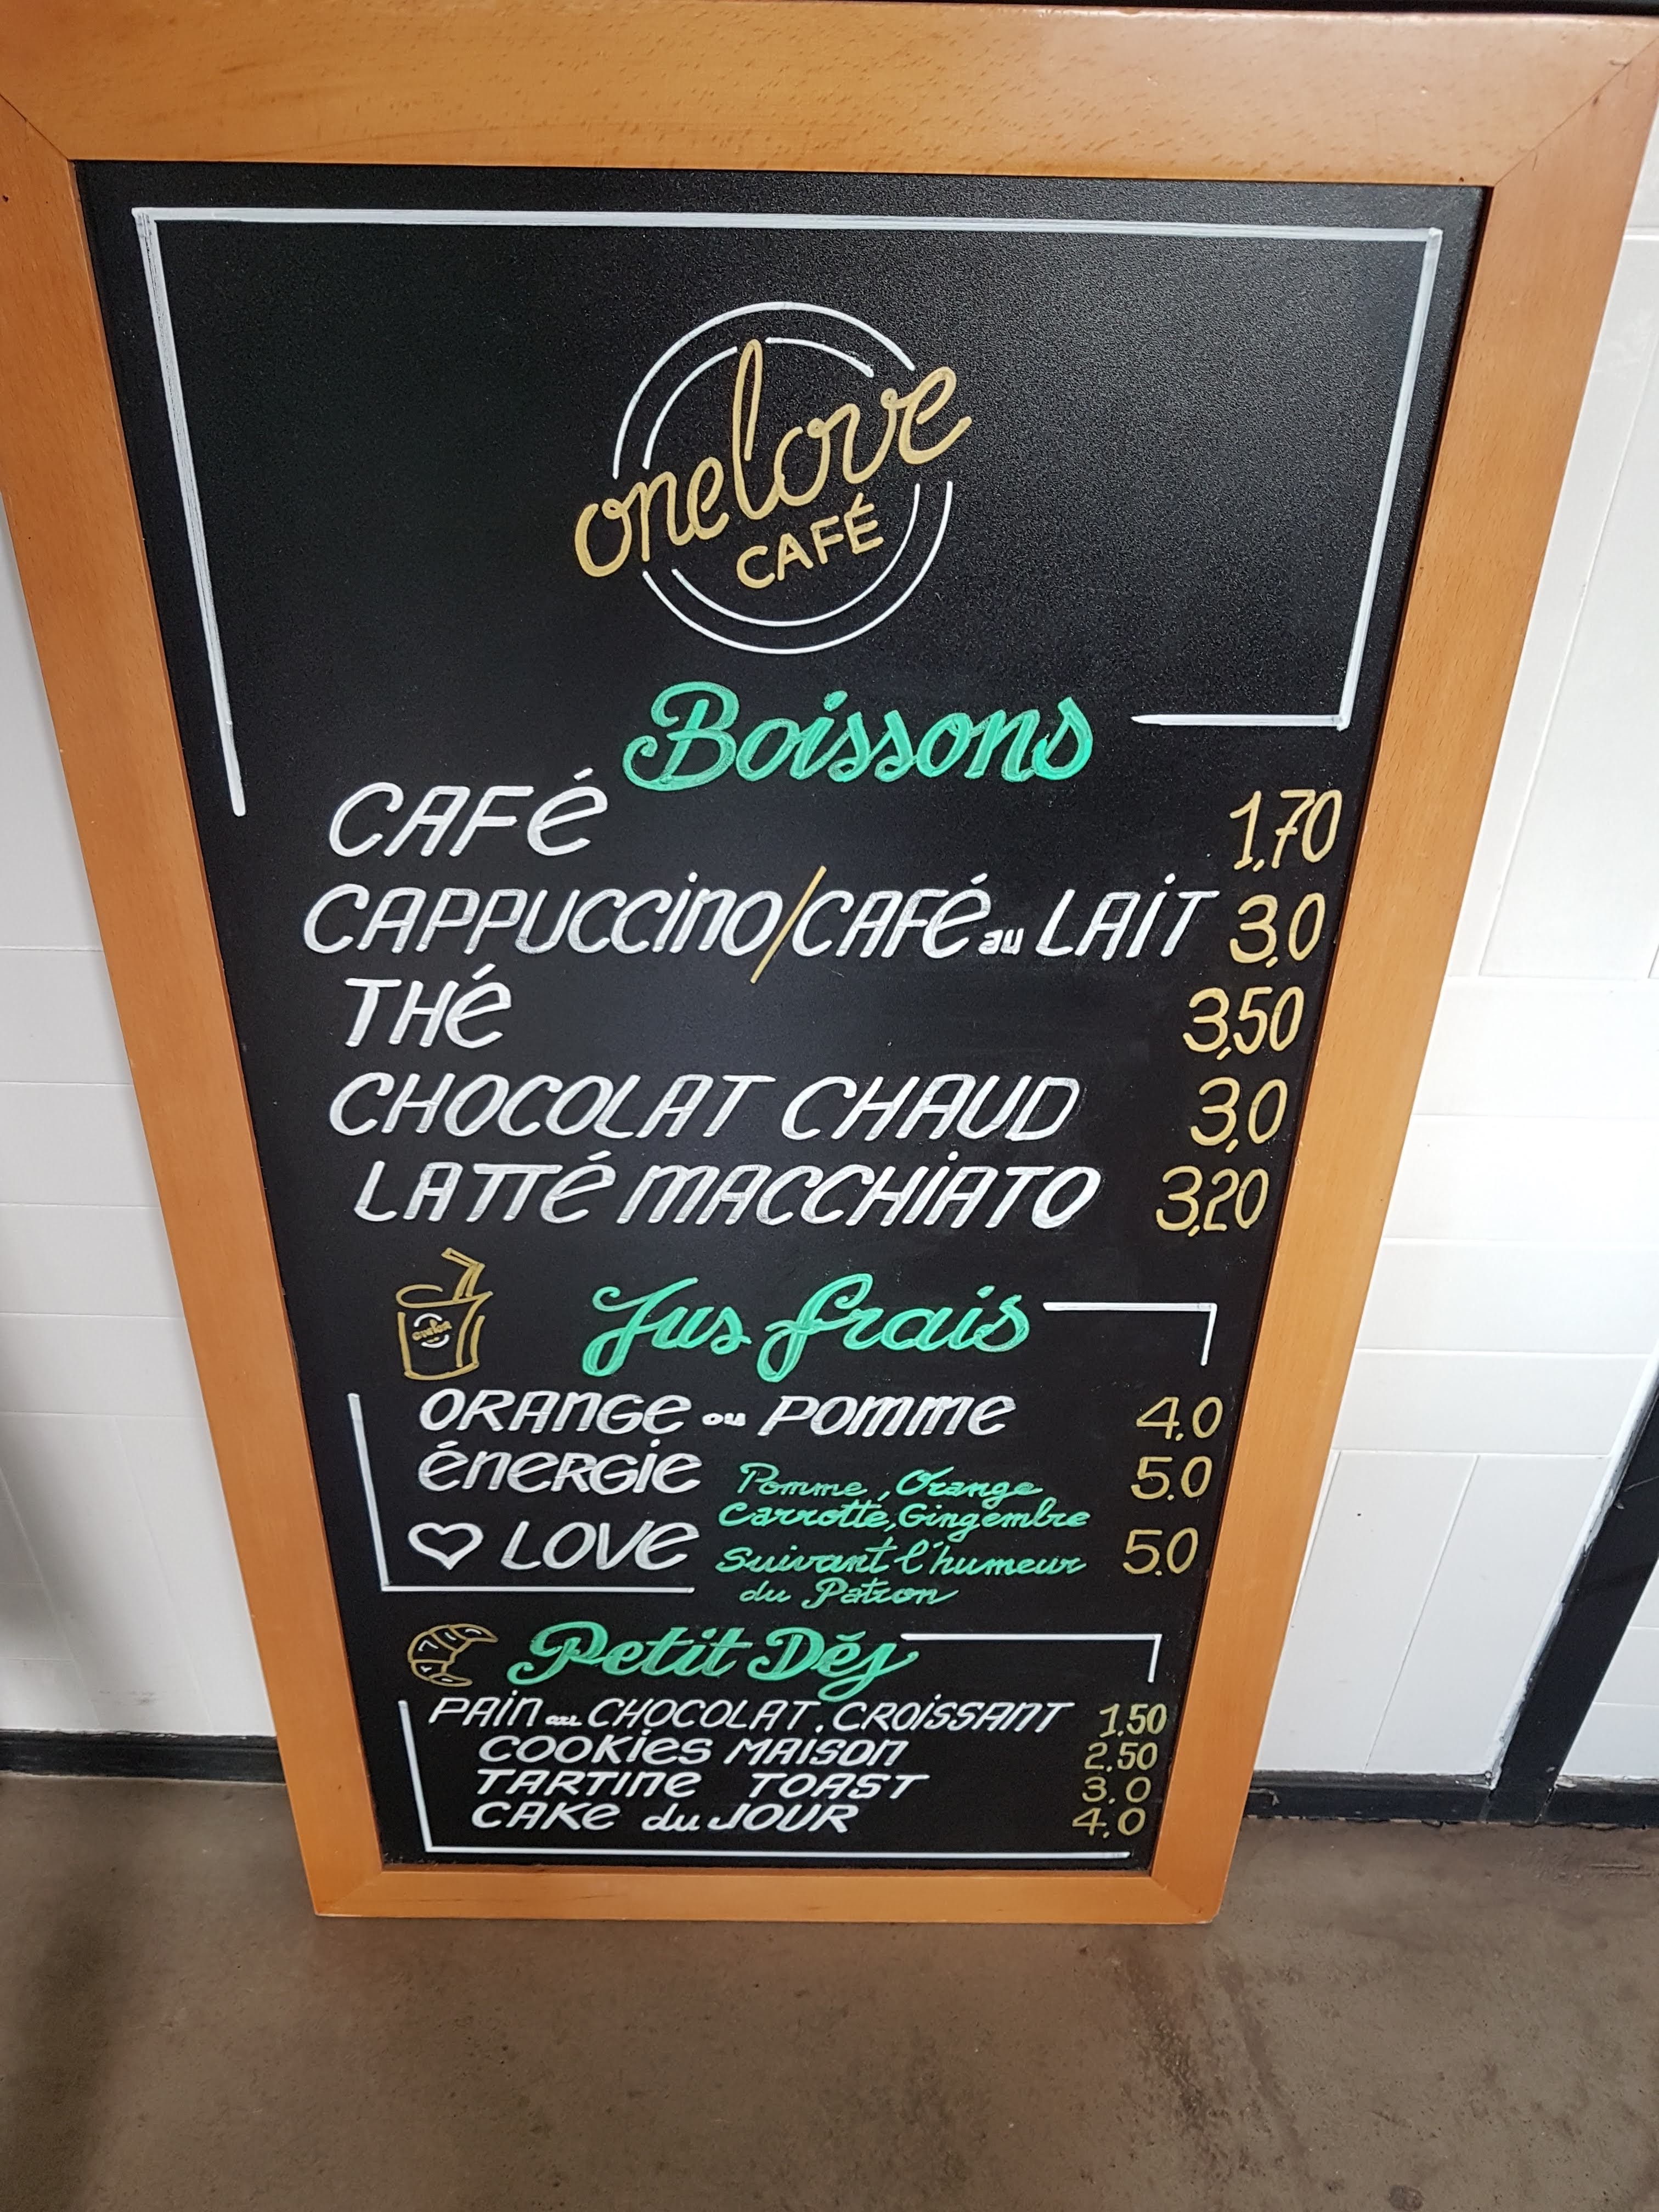 onelove
CAFÉ
Boissons
CAFé 1,70
CAPPUCCiNO/CAFé au LAiT 3,0
THé 3,50
CHOCOLAT CHAUD 3,0
LATTé MACCHiATO 3,20
onelove
Jus frais
ORANGE ou POMME 4,0
éNERGiE Pomme, Orange 5.0
Carrotte, Gingembre
♡ LOVE Suivant l'humeur 5.0
du Patron
Petit Déj
PAiN au CHOCOLAT. CROiSSANT 1.50
COOKiES MAiSON 2.50
TARTiNE TOAST 3.0
CAKE du JOUR 4.0